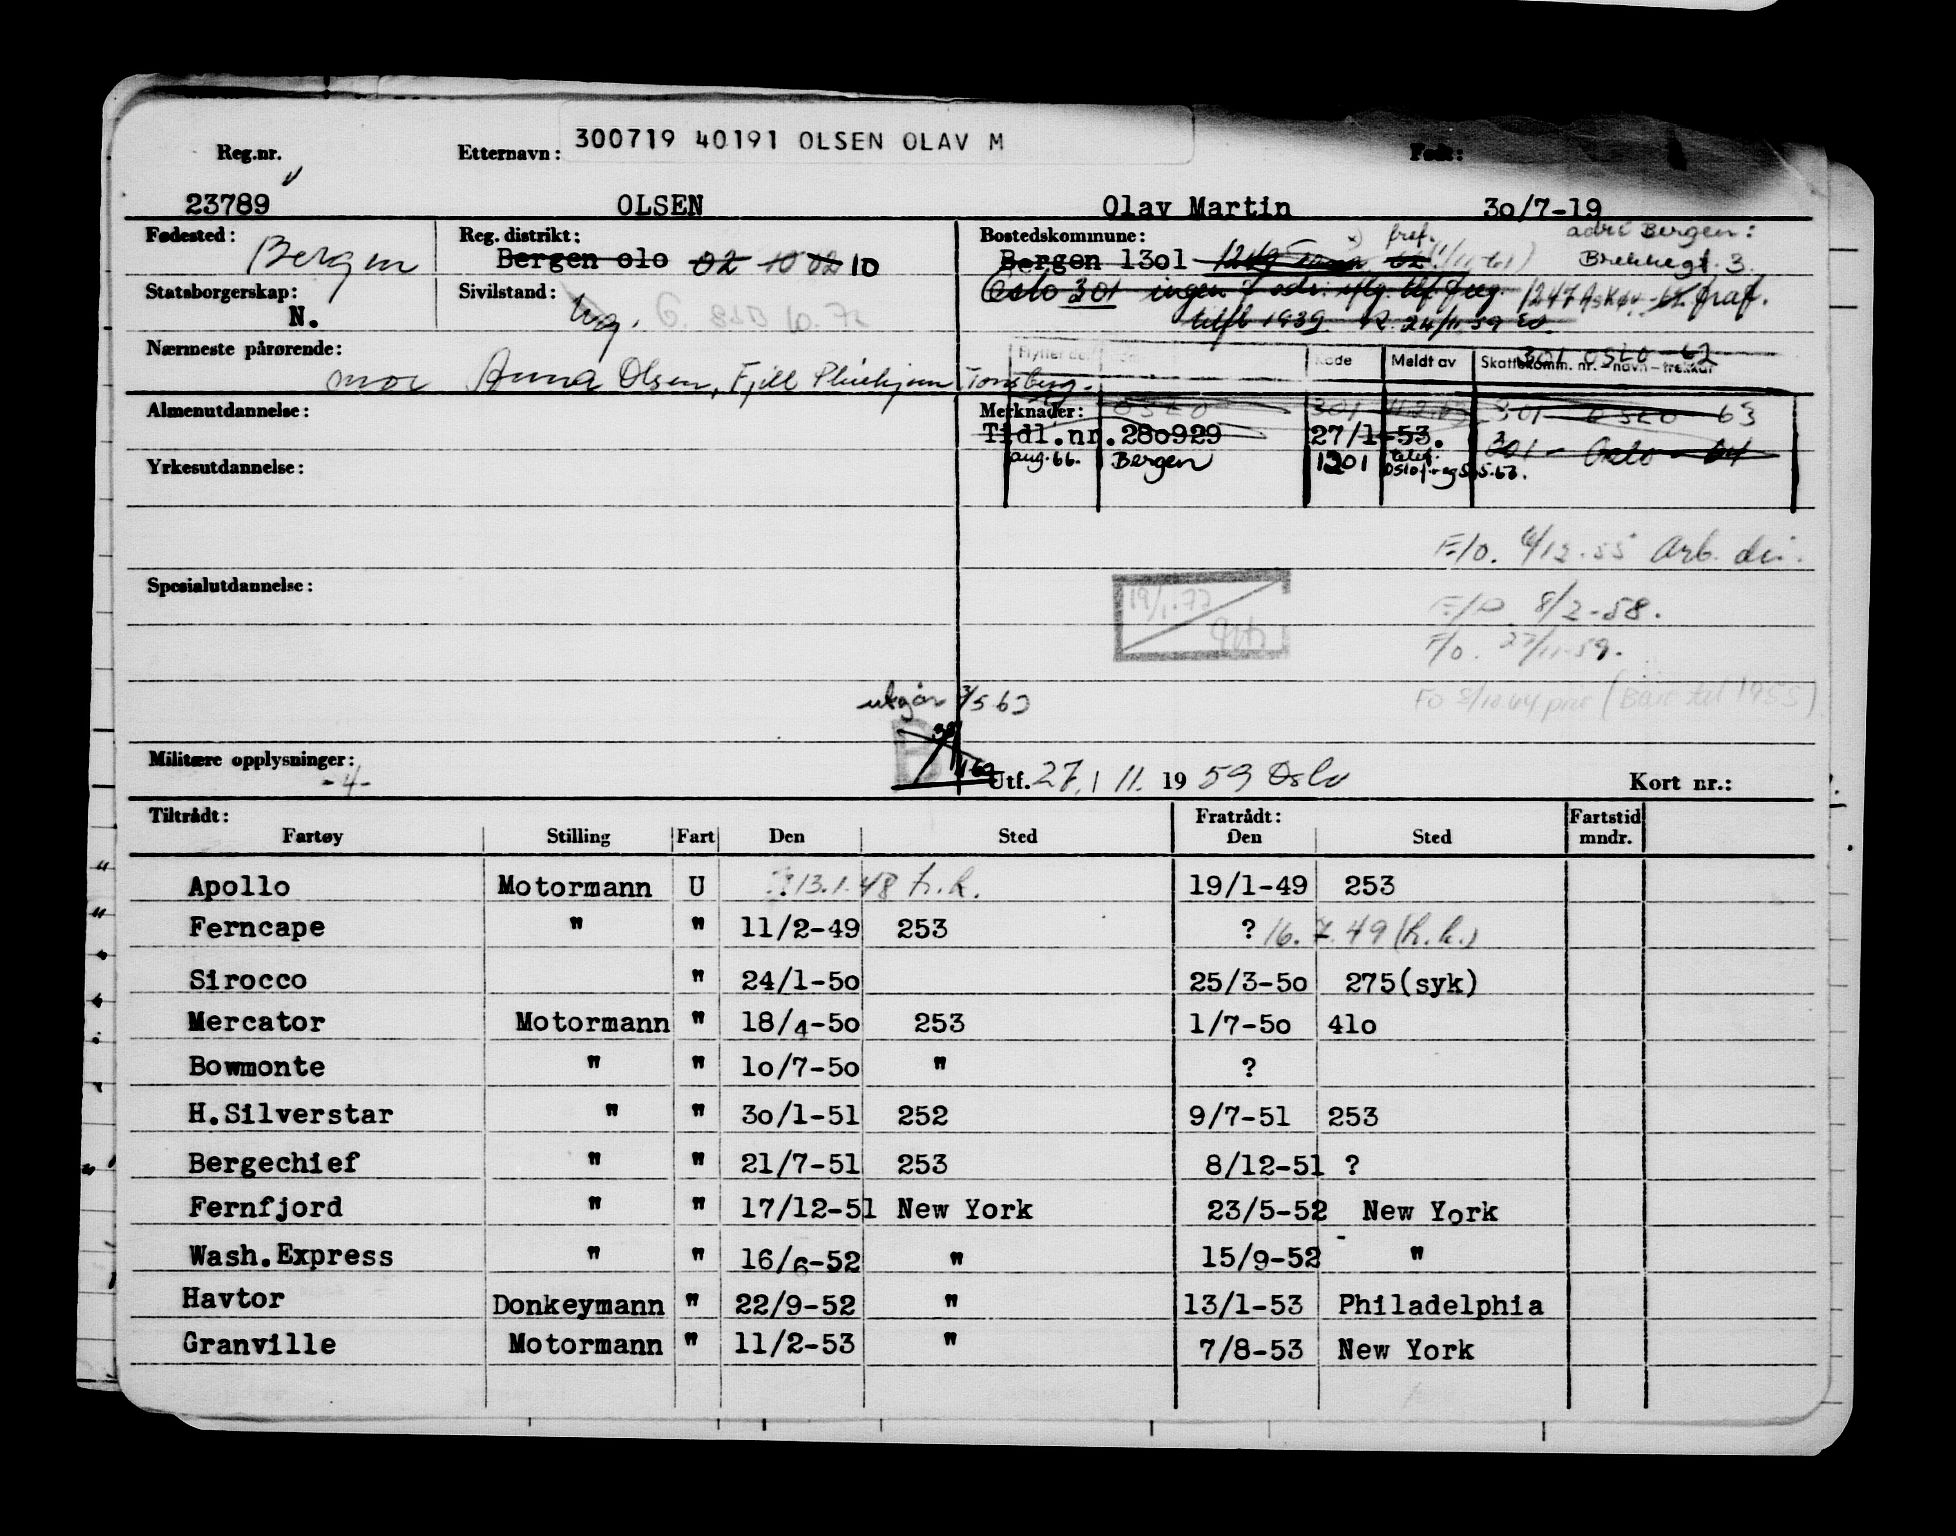 300719 40191 OLSEN OLAV M
Reg.nr. Etternavn: Født:
23789 OLSEN Olav Martin 3o/7-19
Fødested: Bergen Reg. distrikt: Bostedskommune: fref. adr. Bergen:
Bergen olo 02 10 02 10 Bergen 13ol Brekkegt. 3.
Statsborgerskap: Sivilstand: Oslo 301 ingen
N. Ug. 1939
Nærmeste pårørende: Kode Meldt av Skattekomm. nr. - navn - trekkår 301 OSLO 62
mor Anna Olsen, Fjell Tønsberg.
Almenutdannelse: Merknader: OSLO 301 301 OSLO 63
Tidl.nr.28o929 27/1-53. 301 - Oslo - 64
Yrkesutdannelse: aug. 66. Bergen 1301
F/o. 6/12-55 Arb. dir.
Spesialutdannelse: 19/1.72
F/o 8/2-58.
F/o. 27/11-59.
utgår 3/5 63
Militære opplysninger: Utf. 27. / 11. 19 59 Oslo Kort nr.:
-4-
Tiltrådt: Fratrådt: Fartstid
Fartøy Stilling Fart Den Sted Den Sted mndr.
Apollo Motormann U 13.1.48 h.k. 19/1-49 253
Ferncape " " 11/2-49 253 ? 16.7.49 (h.k.)
Sirocco " 24/1-5o 25/3-5o 275(syk)
Mercator Motormann " 18/4-5o 253 1/7-5o 41o
Bowmonte " " 1o/7-5o " ?
H.Silverstar " " 3o/1-51 252 9/7-51 253
Bergechief " " 21/7-51 253 8/12-51 ?
Fernfjord " " 17/12-51 New York 23/5-52 New York
Wash.Express " " 16/6-52 " 15/9-52 "
Havtor Donkeymann " 22/9-52 " 13/1-53 Philadelphia
Granville Motormann " 11/2-53 " 7/8-53 New York